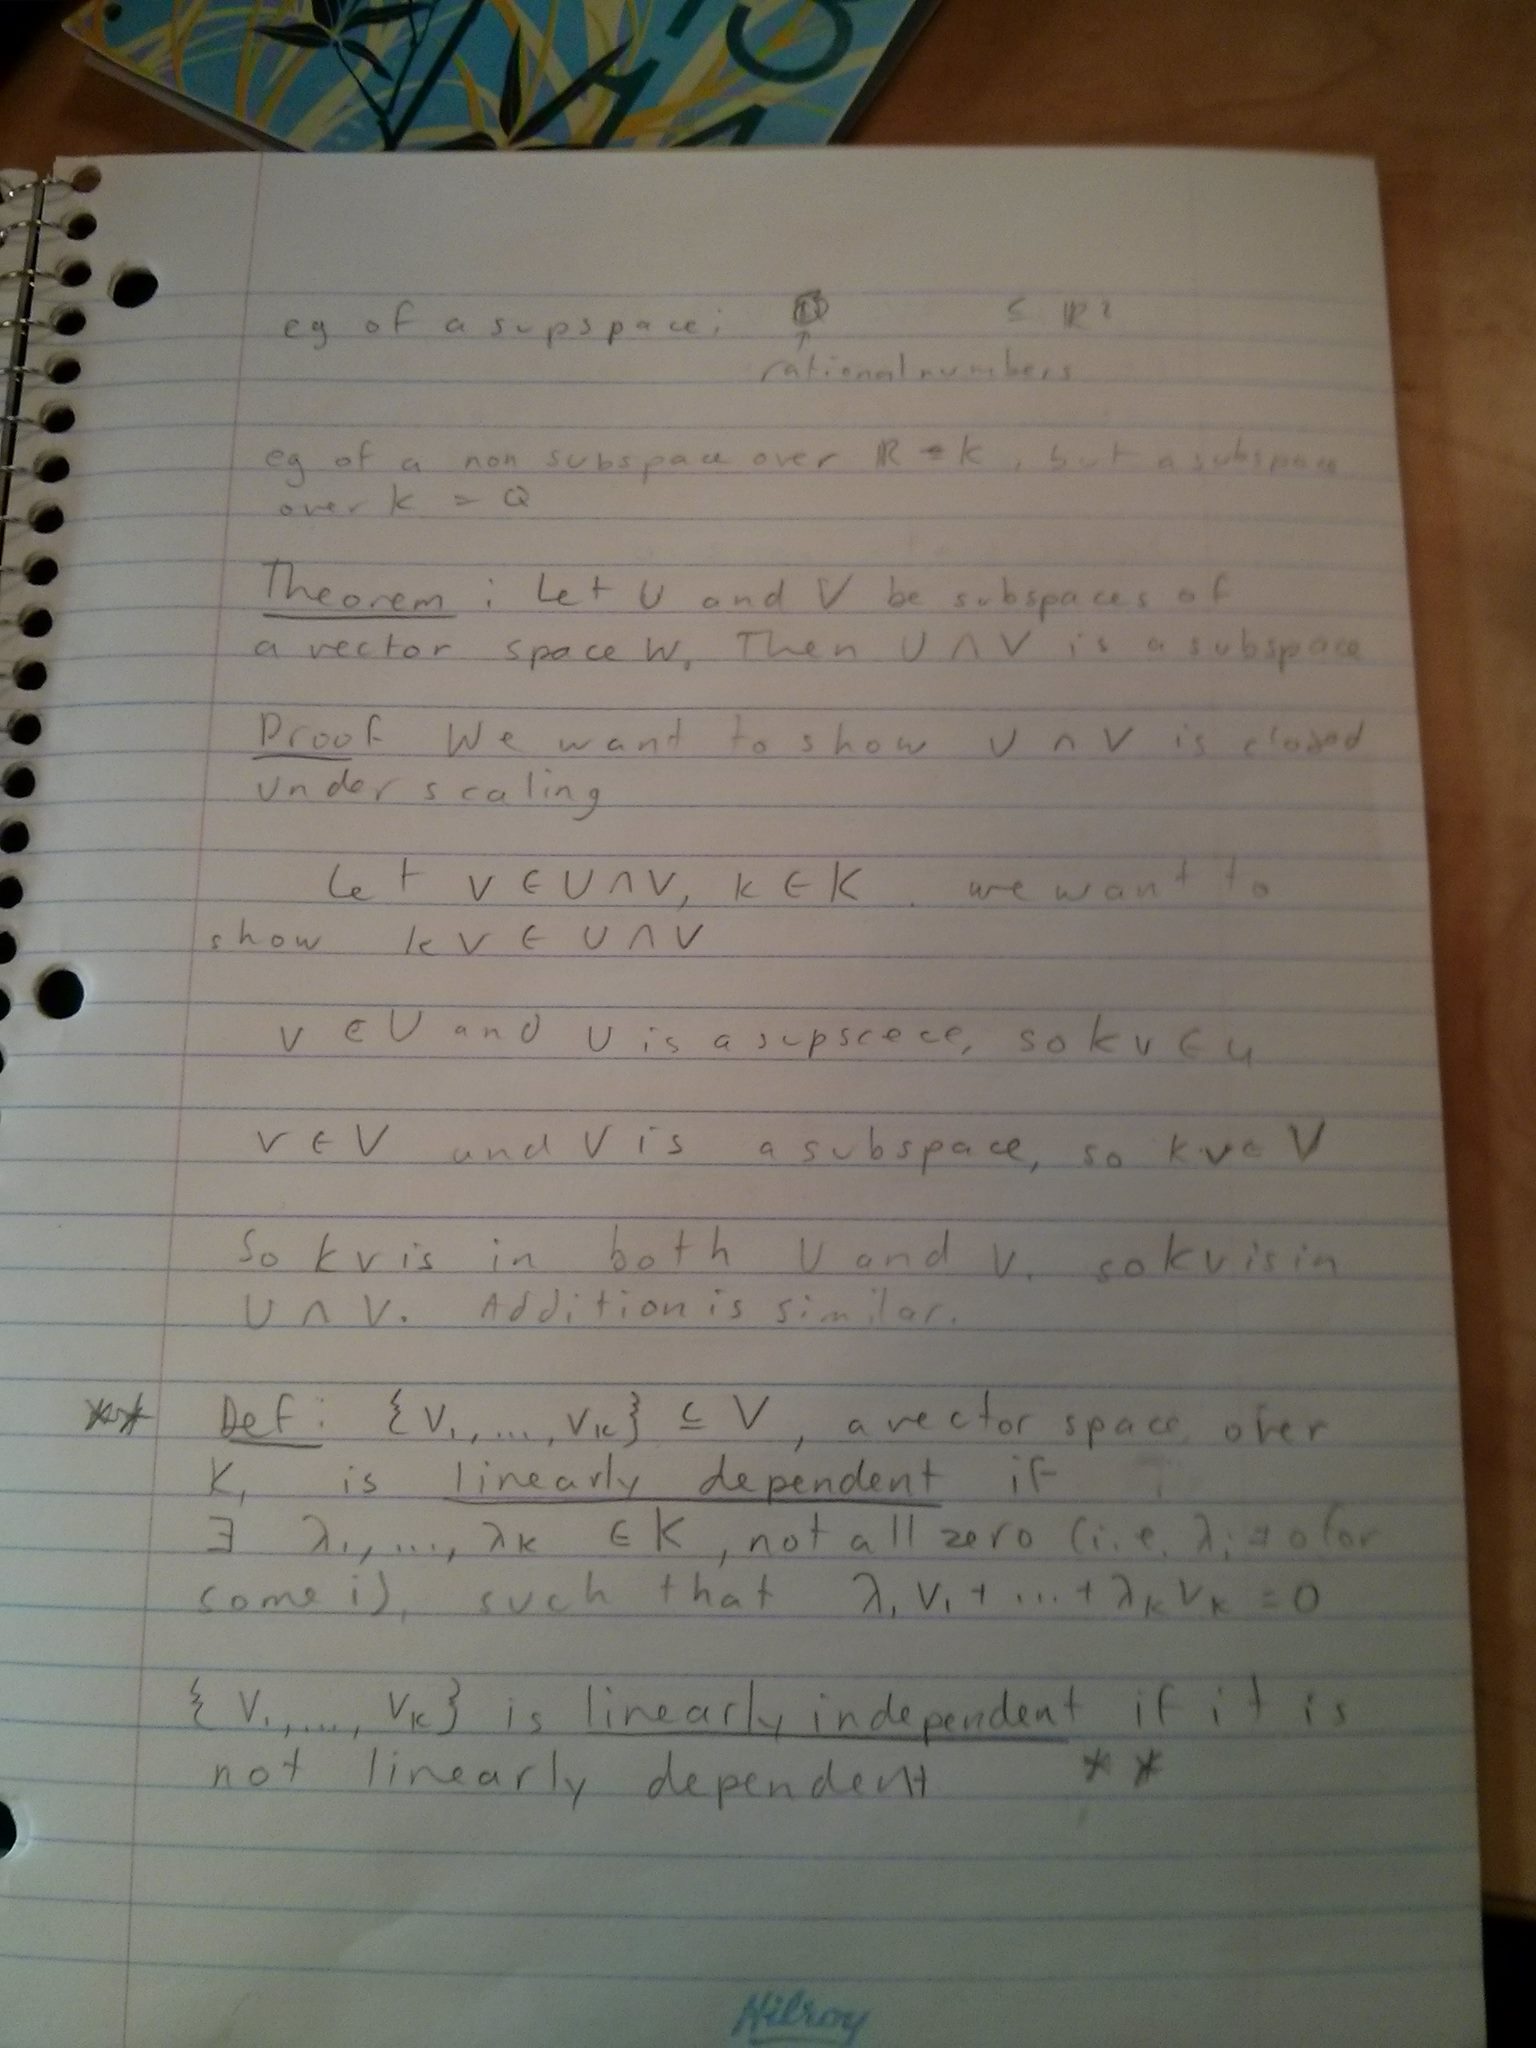 eg of a supspace: ℚ ⊆ ℝ?
↑
rational numbers
eg of a non subspace over ℝ = K, but a subspace
over K = Q
Theorem : Let U and V be subspaces of
a vector space W. Then U ∩ V is a subspace
Proof We want to show U ∩ V is closed
under scaling
Let v ∈ U ∩ V, k ∈ K . we want to
show kv ∈ U ∩ V
v ∈ U and U is a supscece, so kv ∈ U
v ∈ V and V is a subspace, so kv ∈ V
So kv is in both U and V. so kv is in
U ∩ V. Addition is similar.
** Def: {V₁, ..., Vₖ} ⊆ V, a vector space over
K, is linearly dependent if
∃ λ₁, ..., λₖ ∈ K, not all zero (i.e. λᵢ ≠ 0 for
some i), such that λ₁V₁ + ... + λₖVₖ = 0
{V₁, ..., Vₖ} is linearly independent if it is
not linearly dependent **
Hilroy